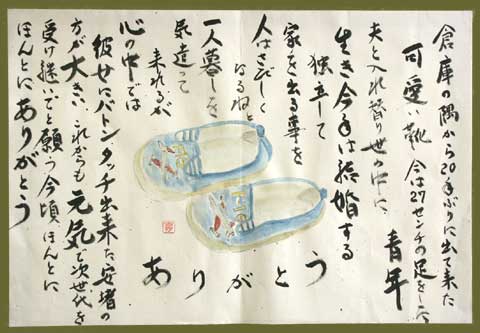 倉庫の隅から20年ぶりに出て来た
可愛い靴 今は27センチの足をした
青年
夫と入れ替り世の中に
生き今年は結婚する
独立して
家を出る事を
人はさびしく
なるねと
一人暮しを
気遣って
来れるが
心の中では
彼女にバトンタッチ出来た安堵の
方が大きい これからも元気で次世代を
受け継いでと願う今頃 ほんとに
ほんとにありがとう
ありがとう